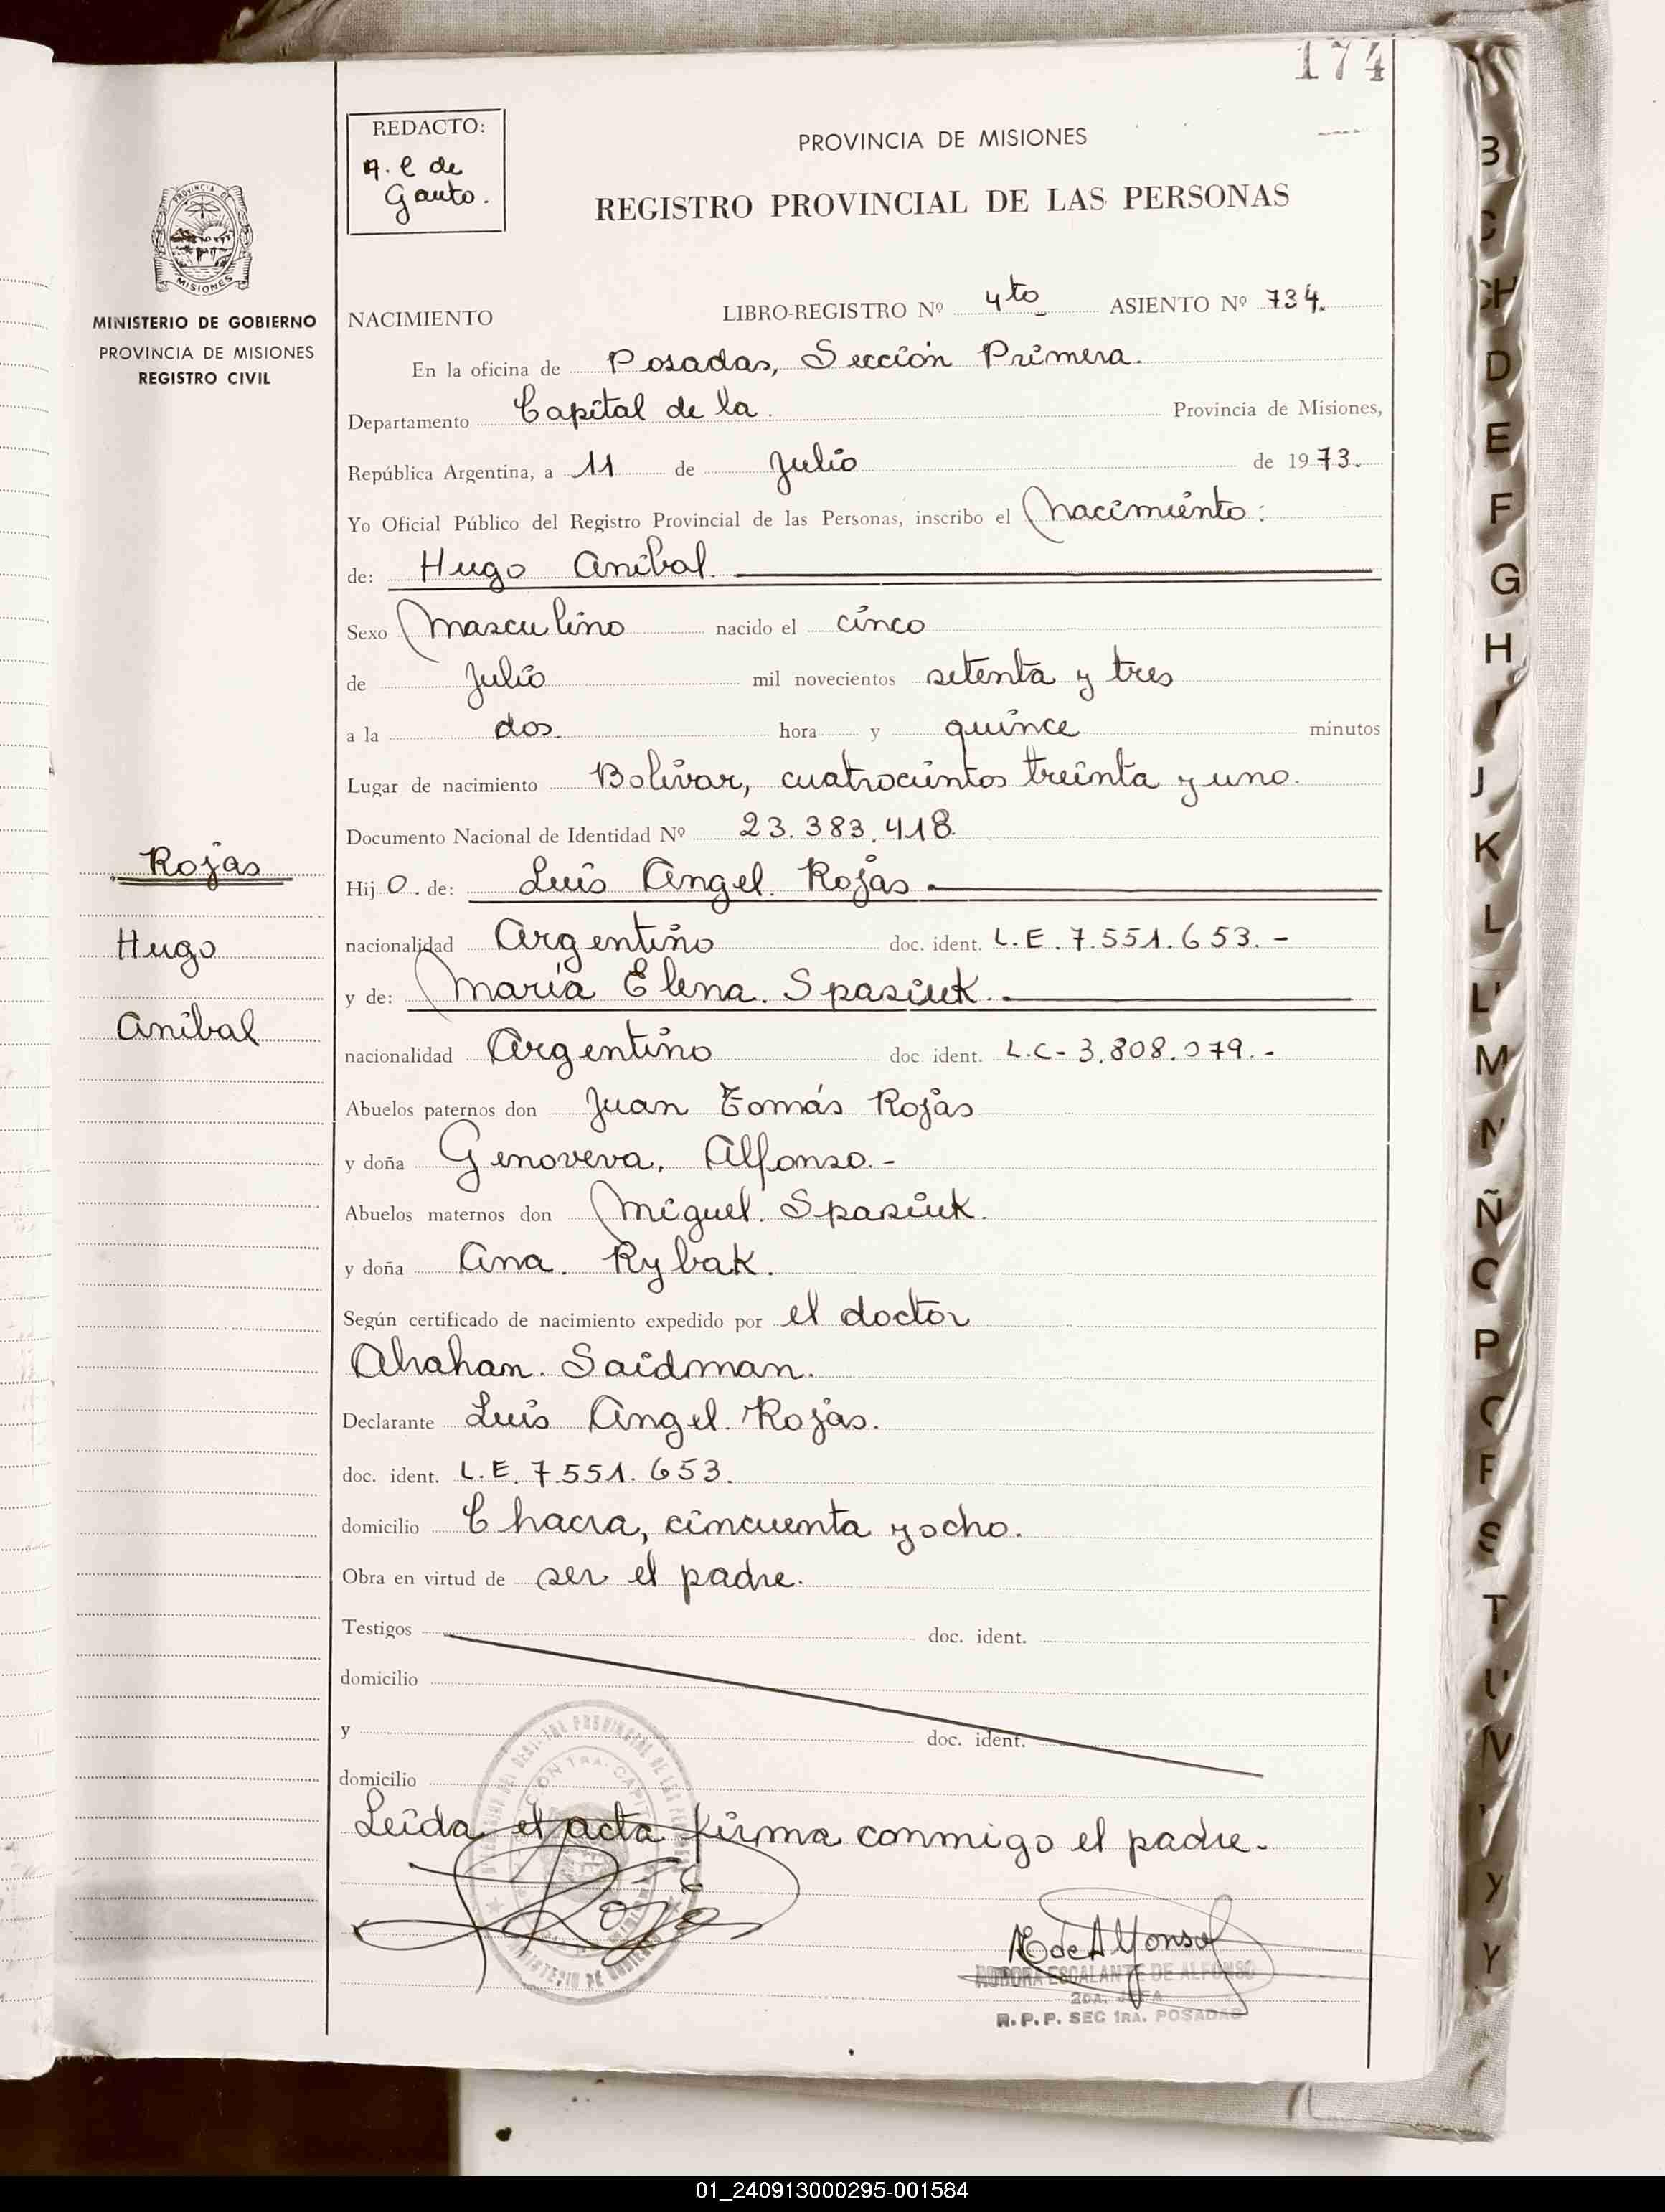 174
REDACTO:
A. E de
Gauto.
PROVINCIA DE MISIONES
REGISTRO PROVINCIAL DE LAS PERSONAS
MISIONES
MINISTERIO DE GOBIERNO
PROVINCIA DE MISIONES
REGISTRO CIVIL
NACIMIENTO LIBRO-REGISTRO Nº 4to ASIENTO Nº 734.
En la oficina de Posadas, Sección Primera.
Departamento Capital de la Provincia de Misiones,
República Argentina, a 11 de Julio de 1973.
Yo Oficial Público del Registro Provincial de las Personas, inscribo el Nacimiento:
de: Hugo Anibal
Sexo Masculino nacido el cinco
de Julio mil novecientos setenta y tres
a la dos hora y quince minutos
Lugar de nacimiento Bolivar, cuatrocientos treinta y uno.
Documento Nacional de Identidad Nº 23.383.418.
Rojas
Hugo
Anibal
Hij o. de: Luis Angel. Rojas
nacionalidad Argentino doc. ident. L.E. 7.551.653.-
y de: María Elena. Spasiuk.
nacionalidad Argentino doc. ident. L.C- 3.808.079.-
Abuelos paternos don Juan Tomás Rojas
y doña Genoveva. Alfonso.-
Abuelos maternos don Miguel. Spasiuk.
y doña Ana. Rybak.
Según certificado de nacimiento expedido por el doctor
Ahahan. Saidman.
Declarante Luis Angel. Rojas.
doc. ident. L.E. 7.551.653.
domicilio Chacra, cincuenta y ocho.
Obra en virtud de ser el padre.
Testigos doc. ident.
domicilio
y doc. ident.
domicilio
Leida el acta firma conmigo el padre.
Rojas
E de Alfonso
ESCALANTE DE ALFONSO
2DA. JEFA
R. P. P. SEC 1RA. POSADAS
B
C
CH
D
E
F
G
H
J
K
L
LL
M
N
Ñ
O
P
Q
R
S
T
U
V
Y
01_240913000295-001584